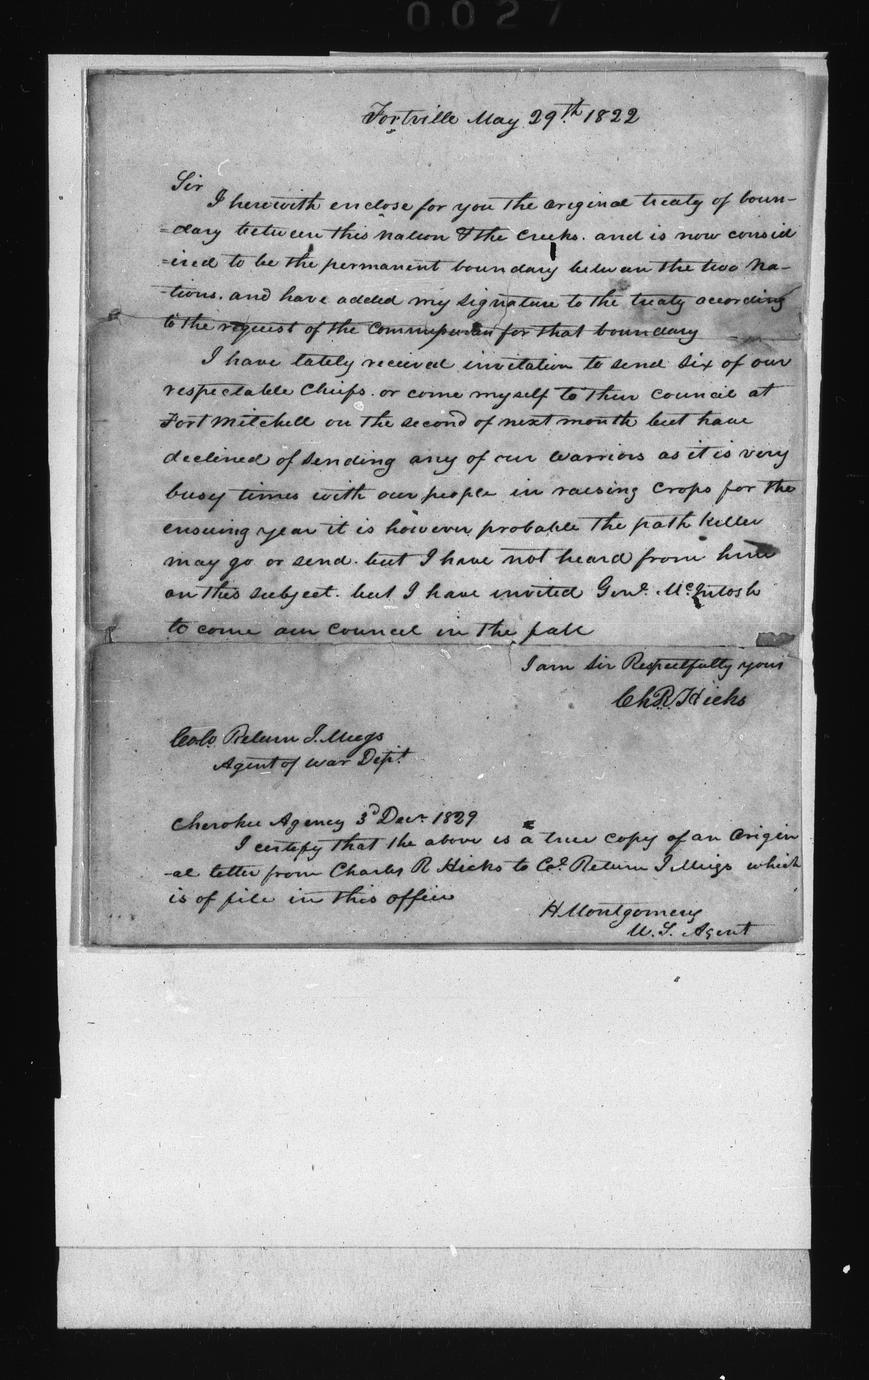 0027
Fortville May 29th 1822
Sir
I herewith enclose for you the original treaty of boun-
=dary between this nation & the Creeks. and is now consid
=ered to be the permanent boundary between the two na-
-tions. and have added my signature to the treaty according
to the request of the Commissioners for that boundary
I have lately received invitation to send six of our
respectable Chiefs. or come myself to their council at
Fort Mitchell on the second of next month but have
declined of sending any of our warriors as it is very
busy times with our people in raising crops for the
ensuing year it is however probable the path killer
may go or send. but I have not heard from him
on this subject. but I have invited Genl. McIntosh
to come our council in the fall
I am Sir Respectfully yours
Ch. R. Hicks
Colo. Return J. Meigs
Agent of War Dept.
Cherokee Agency 3d Decr. 1829
I certify that the above is a true copy of an origin
-al letter from Charles R Hicks to Col. Return J. Meigs which
is of file in this office
H Montgomery
U. S. Agent